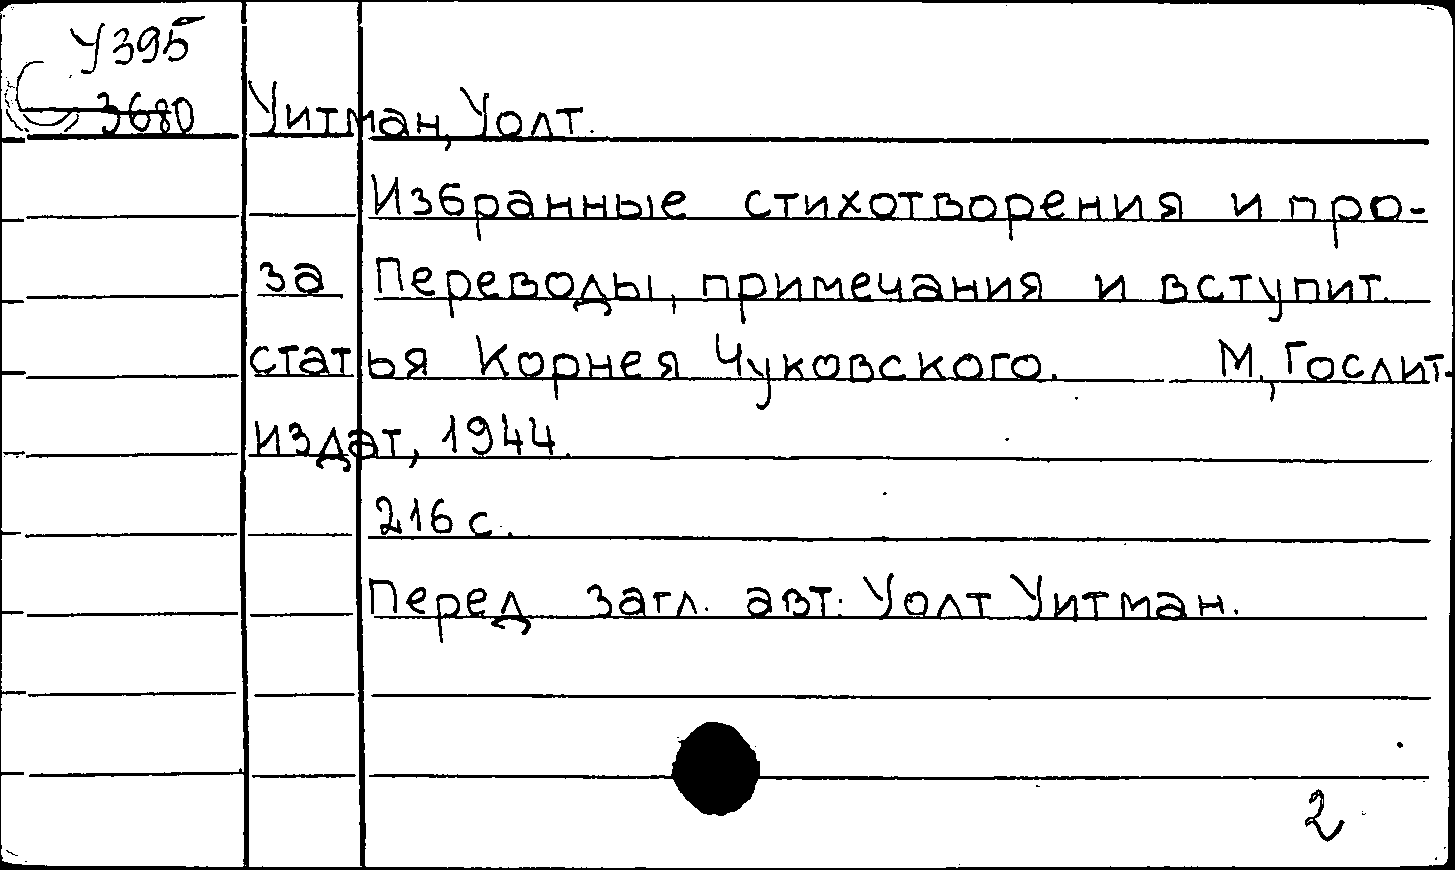 У395
3680
Уитман, Уолт.
Избранные стихотворения и про-
за Переводы, примечания и вступит.
статья Корнея Чуковского. М., Гослит-
издат, 1944.
216 с.
Перед загл. авт: Уолт Уитман.
2